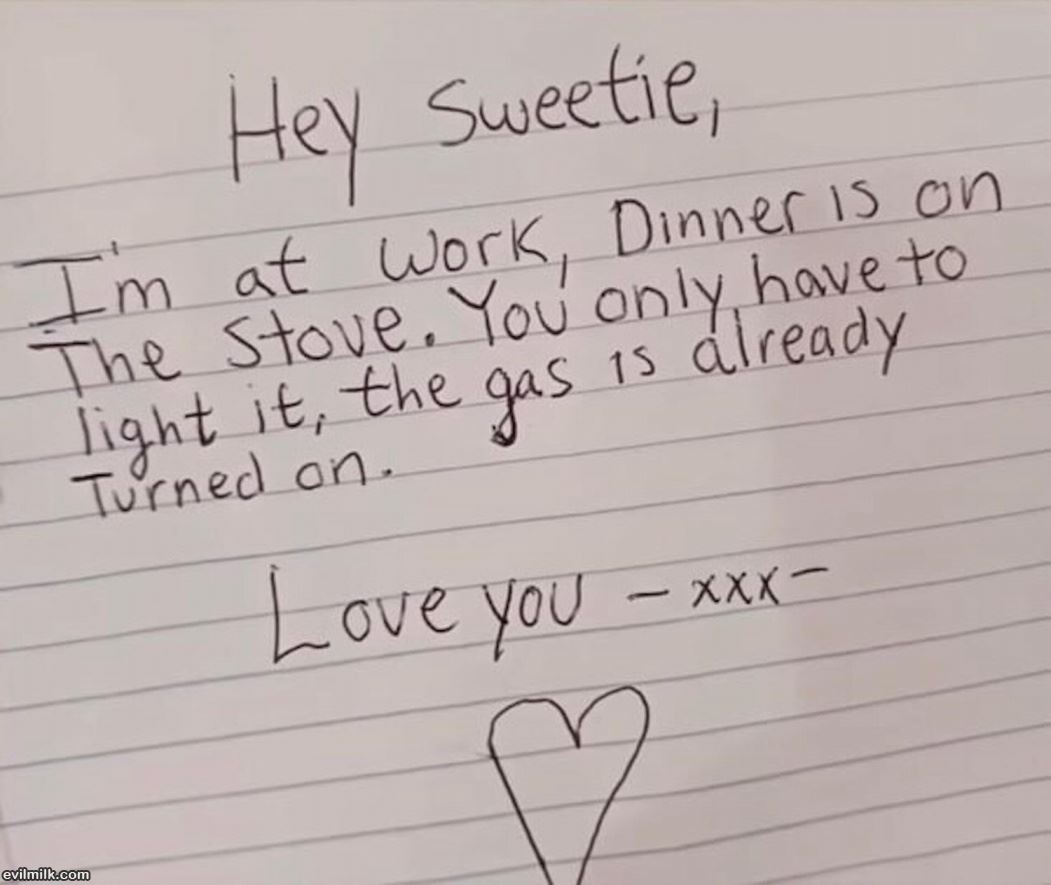 Hey Sweetie,
I'm at work, Dinner is on
The stove. You only have to
light it, the gas is already
Turned on.
Love you - xxx -
evilmilk.com